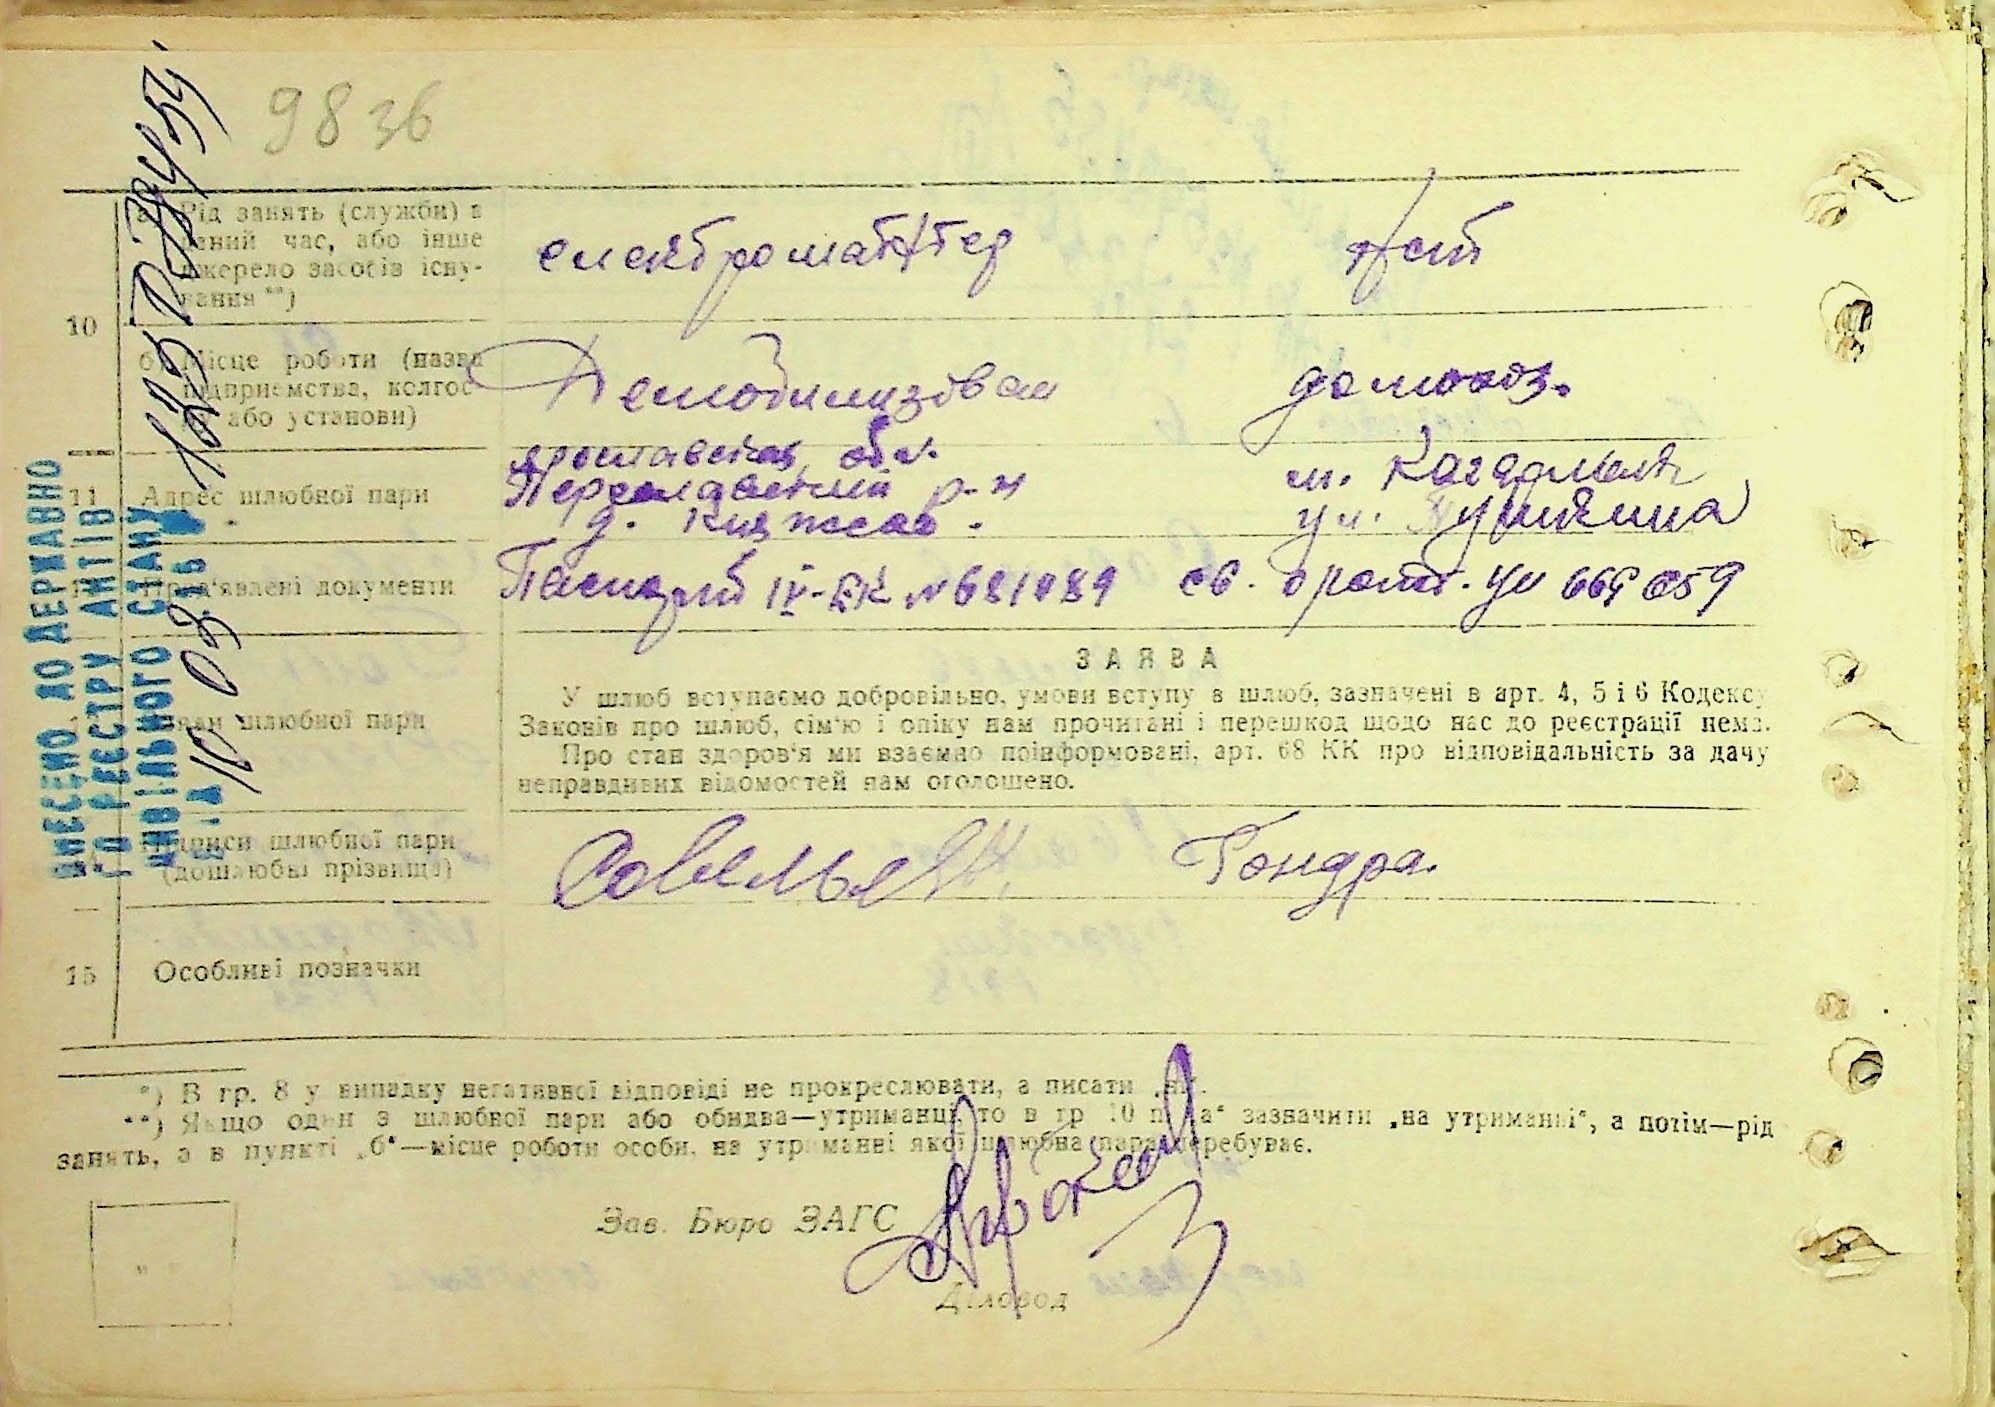 9836
10
а) Рід занять (служби) в
даний час, або інше
джерело засобів існу-
вання **)
електромантер
нет
б) Місце роботи (назва
підприємства, колгос-
пу або установи)
Демобилизован
домохоз.
11
Адрес шлюбної пари
Ярославская обл.
Переславский р-н
д.
м. Кагарлык
ул. Пушкина
Пред'явлені документи
Паспорт IV-БК №
св. о рожд.
Заяви шлюбної пари
ЗАЯВА
У шлюб вступаємо добровільно, умови вступу в шлюб, зазначені в арт. 4, 5 і 6 Кодексу
Законів про шлюб, сім'ю і опіку нам прочитані і перешкод щодо нас до реєстрації нема.
Про стан здоров'я ми взаємно поінформовані, арт. 68 КК про відповідальність за дачу
неправдивих відомостей нам оголошено.
Підписи шлюбної пари
(дошлюбні прізвища)
Савельев
Гондра.
15
Особливі позначки
*) В гр. 8 у випадку негативної відповіді не прокреслювати, а писати „ні“.
**) Якщо один з шлюбної пари або обидва—утриманці, то в гр. 10 п. „а“ зазначити „на утриманні“, а потім—рід
занять, а в пункті „б“—місце роботи особи, на утриманні якої шлюбна пара перебуває.
Зав. Бюро ЗАГС
Діловод
ВНЕСЕНО ДО ДЕРЖАВНО
ГО РЕЄСТРУ АКТІВ
ЦИВІЛЬНОГО СТАНУ